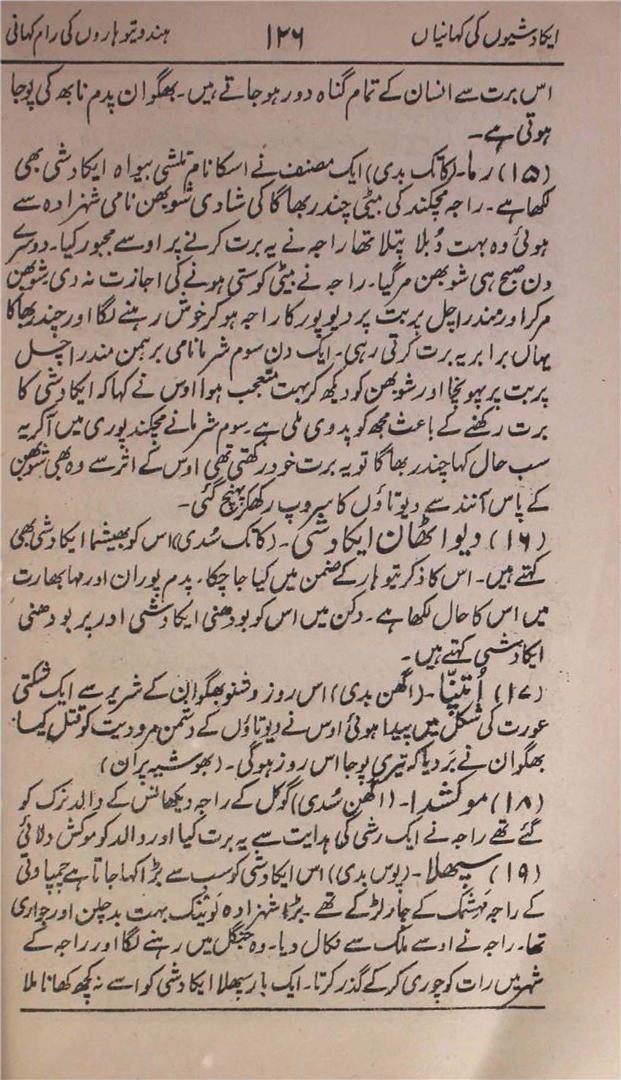 ایکادشیوں کی کہانیاں ۱۲۶ ہندو تیوہاروں کی رام کہانی
اس برت سے انسان کے تمام گناہ دور ہو جاتے ہیں۔ بھگوان پدم نابھ کی پوجا
ہوتی ہے۔
(۱۵) رُما۔ (کاتک بدی) ایک مصنف نے اسکا نام تلشی بیواہ ایکادشی بھی
لکھا ہے۔ راجہ مچکند کی بیٹی چندر بھاگا کی شادی شوبھن نامی شہزادہ سے
ہوئی وہ بہت دُبلا پتلا تھا راجہ نے یہ برت کرنے پر اوسے مجبور کیا۔ دوسرے
دن صبح ہی شوبھن مر گیا۔ راجہ نے بیٹی کو ستی ہونے کی اجازت نہ دی شوبھن
مرکر اور مندراچل پربت پر دیوپور کا راجہ ہوکر خوش رہنے لگا اور چندربھاگا
یہاں برابر یہ برت کرتی رہی۔ ایک دن سوم شرما نامی برہمن مندراچل
پربت پر پہونچا اور شوبھن کو دیکھ کر بہت متعجب ہوا اوس نے کہا کہ ایکادشی کا
برت رکھنے کے باعث مجھ کو پدوی ملی ہے۔ سوم شرما نے مچکند پوری میں آکر یہ
سب حال کہا چندر بھاگا تو یہ برت خود رکھتی تھی اوس کے اثر سے وہ بھی شوبھن
کے پاس آنند سے دیوتاؤں کا سروپ رکھکر پہنچ گئی۔
(۱۶) دیو اٹھان ایکادشی۔ (کاتک سُدی) اس کو بھیشما ایکادشی بھی
کہتے ہیں۔ اس کا ذکر تیوہار کے ضمن میں کیا جا چکا۔ پدم پوران اور مہا بھارت
میں اس کا حال لکھا ہے۔ دکن میں اس کو بودھنی ایکادشی اور پربودھنی
ایکادشی کہتے ہیں۔
(۱۷) اُتپنّا۔ (اگھن بدی) اس روز وشنو بھگوان کے شریر سے ایک شکتی
عورت کی شکل میں پیدا ہوئی اوس نے دیوتاؤں کے دشمن مرودیت کو قتل کیا۔
بھگوان نے بَر دیا کہ تیری پوجا اس روز ہوگی۔ (بھوشیہ پران)
(۱۸) موکشدا۔ (اگھن سُدی) گوکل کے راجہ دیکھانس کے والد نرک کو
گئے تھے راجہ نے ایک رشی کی ہدایت سے یہ برت کیا اور والد کو موکش دلائی
(۱۹) سپھلا۔ (پوس بدی) اس ایکادشی کو سب سے بڑا کہا جاتا ہے چمپاوتی
کے راجہ کے چار لڑکے تھے۔ بڑا شہزادہ بہت بدچلن اور جواری
تھا۔ راجہ نے اوسے ملک سے نکال دیا۔ وہ جنگل میں رہنے لگا اور راجہ کے
شہر میں رات کو چوری کر کے گذر کرتا۔ ایک بار سپھلا ایکادشی کو اسے نہ کچھ کھانا ملا